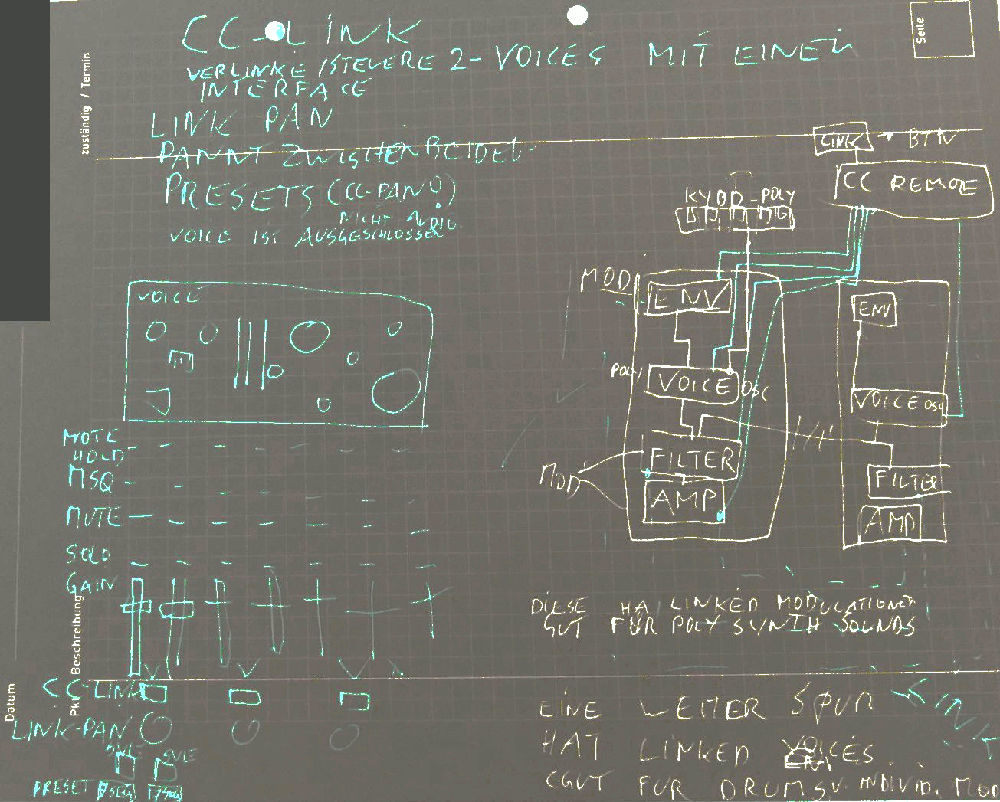 CC-LINK
VERLINKE/STEUERE 2-VOICES MIT EINEM
INTERFACE
LINK PAN
PANNT ZWISCHEN BEIDEN
PRESETS (CC-PAN!)
NICHT AUDIO
VOICE IST AUSGESCHLOSSEN
zuständig / Termin
Seite
LINK BTN
CC REMOTE
KYBD-POLY
MOD
ENV
POLY
VOICE OSC
FILTER
MOD
AMP
ENV
VOICE OSC
FILTER
AMP
VOICE
NOTE
HOLD
MSQ
MUTE
SOLO
GAIN
Beschreibung
CC-LINK
LINK-PAN
PRESET
Datum
DIESE HA LINKED MODULATIONEN
GUT FÜR POLY SYNTH SOUNDS
EINE WEITER SPUR
HAT LINKED VOICES
CGUT FÜR DRUMS U. INDIVID. MOD